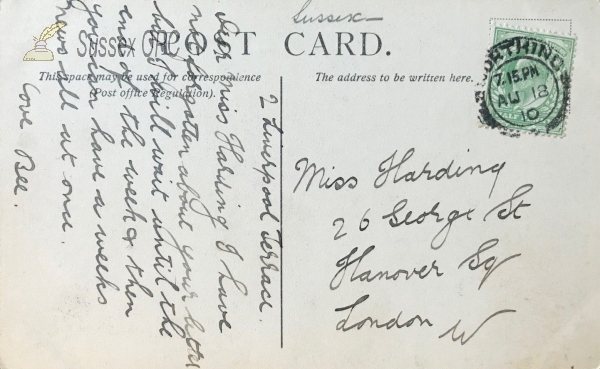 Sussex
Sussex OPC
POST CARD.
This space may be used for correspondence
(Post office Regulation).
The address to be written here.
WORTHING
7.15.PM
AU 18
10
2 Liverpool Terrace.
Dear Miss Harding I have
not forgotten about your letter
but I will wait until the
end of the week & then
you can have a weeks
news all at once.
Love Bee.
Miss Harding
26 George St
Hanover Sq
London W